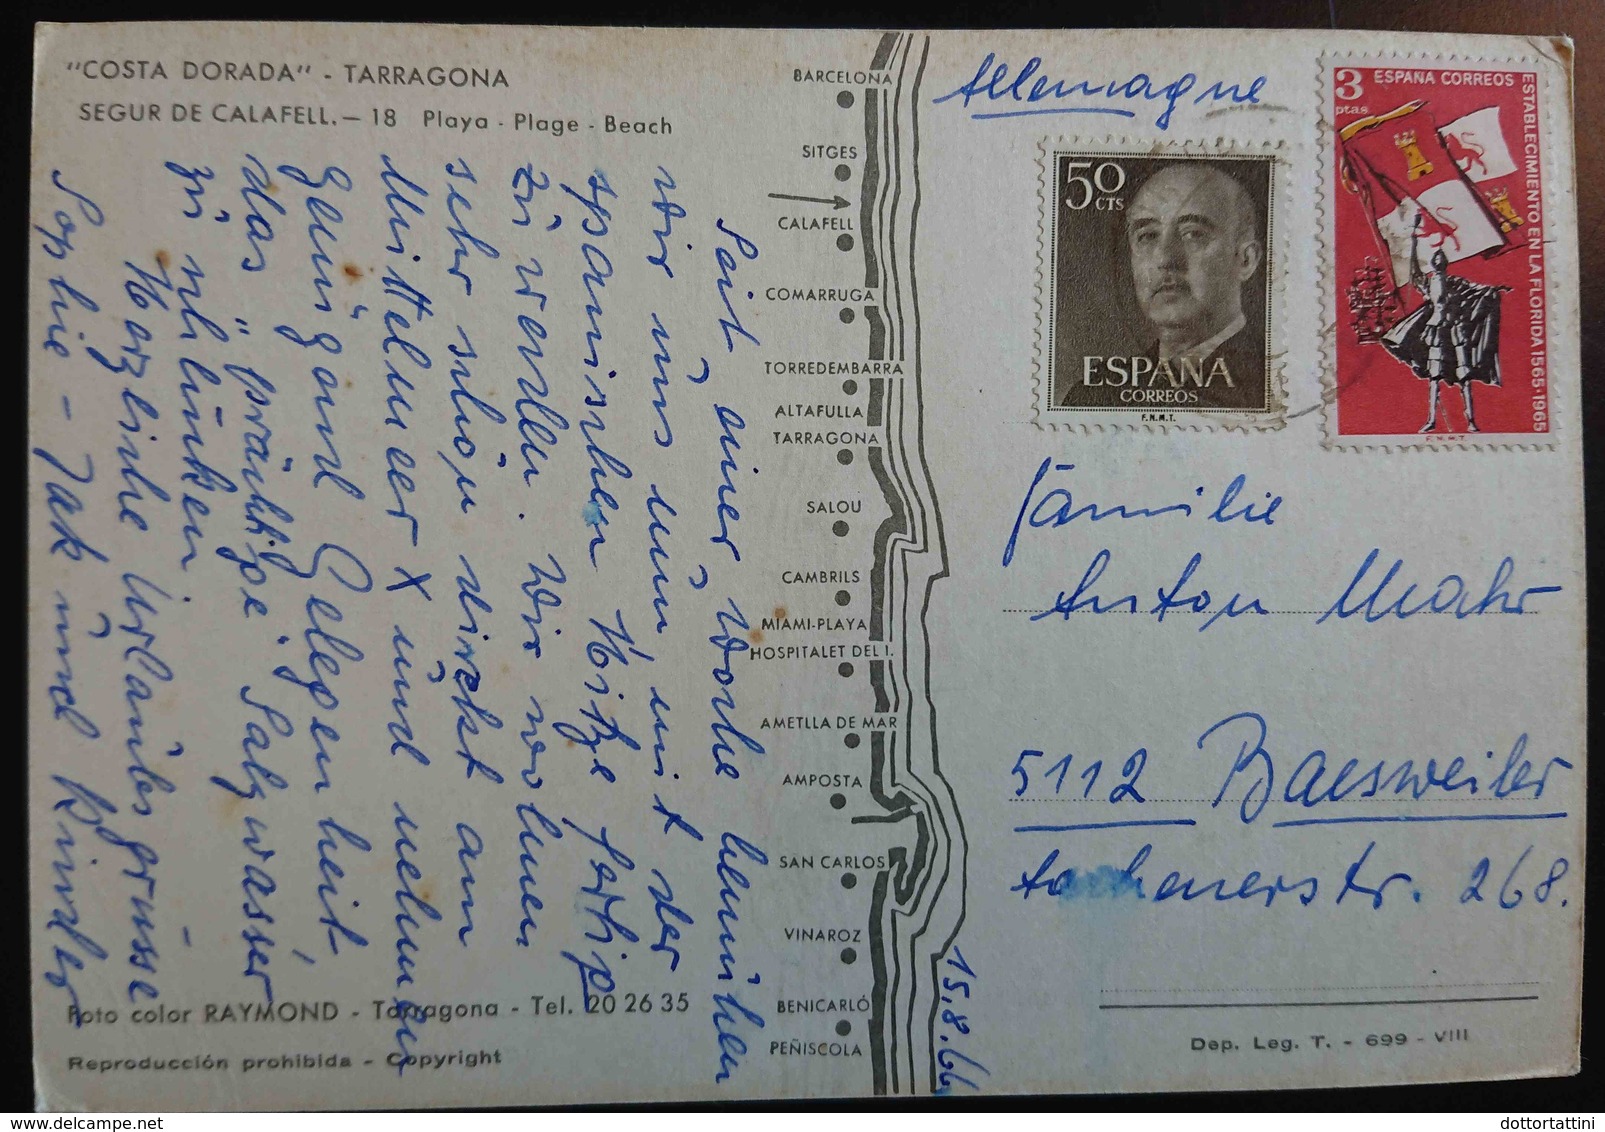 "COSTA DORADA" - TARRAGONA
SEGUR DE CALAFELL.— 18 Playa - Plage - Beach
Seit einer Woche bemühen
wir uns nun mit der
spanischen Hitze fertig
zu werden. Wir wohnen
sehr schön direkt am
Mittelmeer x und nehmen
genügend Gelegenheit,
das "prächtige" Salzwasser
zu schlucken.
Herzliche Urlaubsgrüsse
Sophie - Jak und Kinder
Foto color RAYMOND - Tarragona - Tel. 20 26 35
Reproducción prohibida - Copyright
BARCELONA
SITGES
CALAFELL
COMARRUGA
TORREDEMBARRA
ALTAFULLA
TARRAGONA
SALOU
CAMBRILS
MIAMI-PLAYA
HOSPITALET DEL I.
AMETLLA DE MAR
AMPOSTA
SAN CARLOS
VINAROZ
BENICARLÓ
PEÑISCOLA
15.8.66
Allemagne
50
CTS
ESPAÑA
CORREOS
F.N.M.T.
3
ptas
ESPAÑA CORREOS
ESTABLECIMIENTO EN LA FLORIDA 1565-1965
F.N.M.T.
Familie
Anton Mahr
5112 Baesweiler
Aachenerstr. 268.
Dep. Leg. T. - 699 - VIII
dottortattini